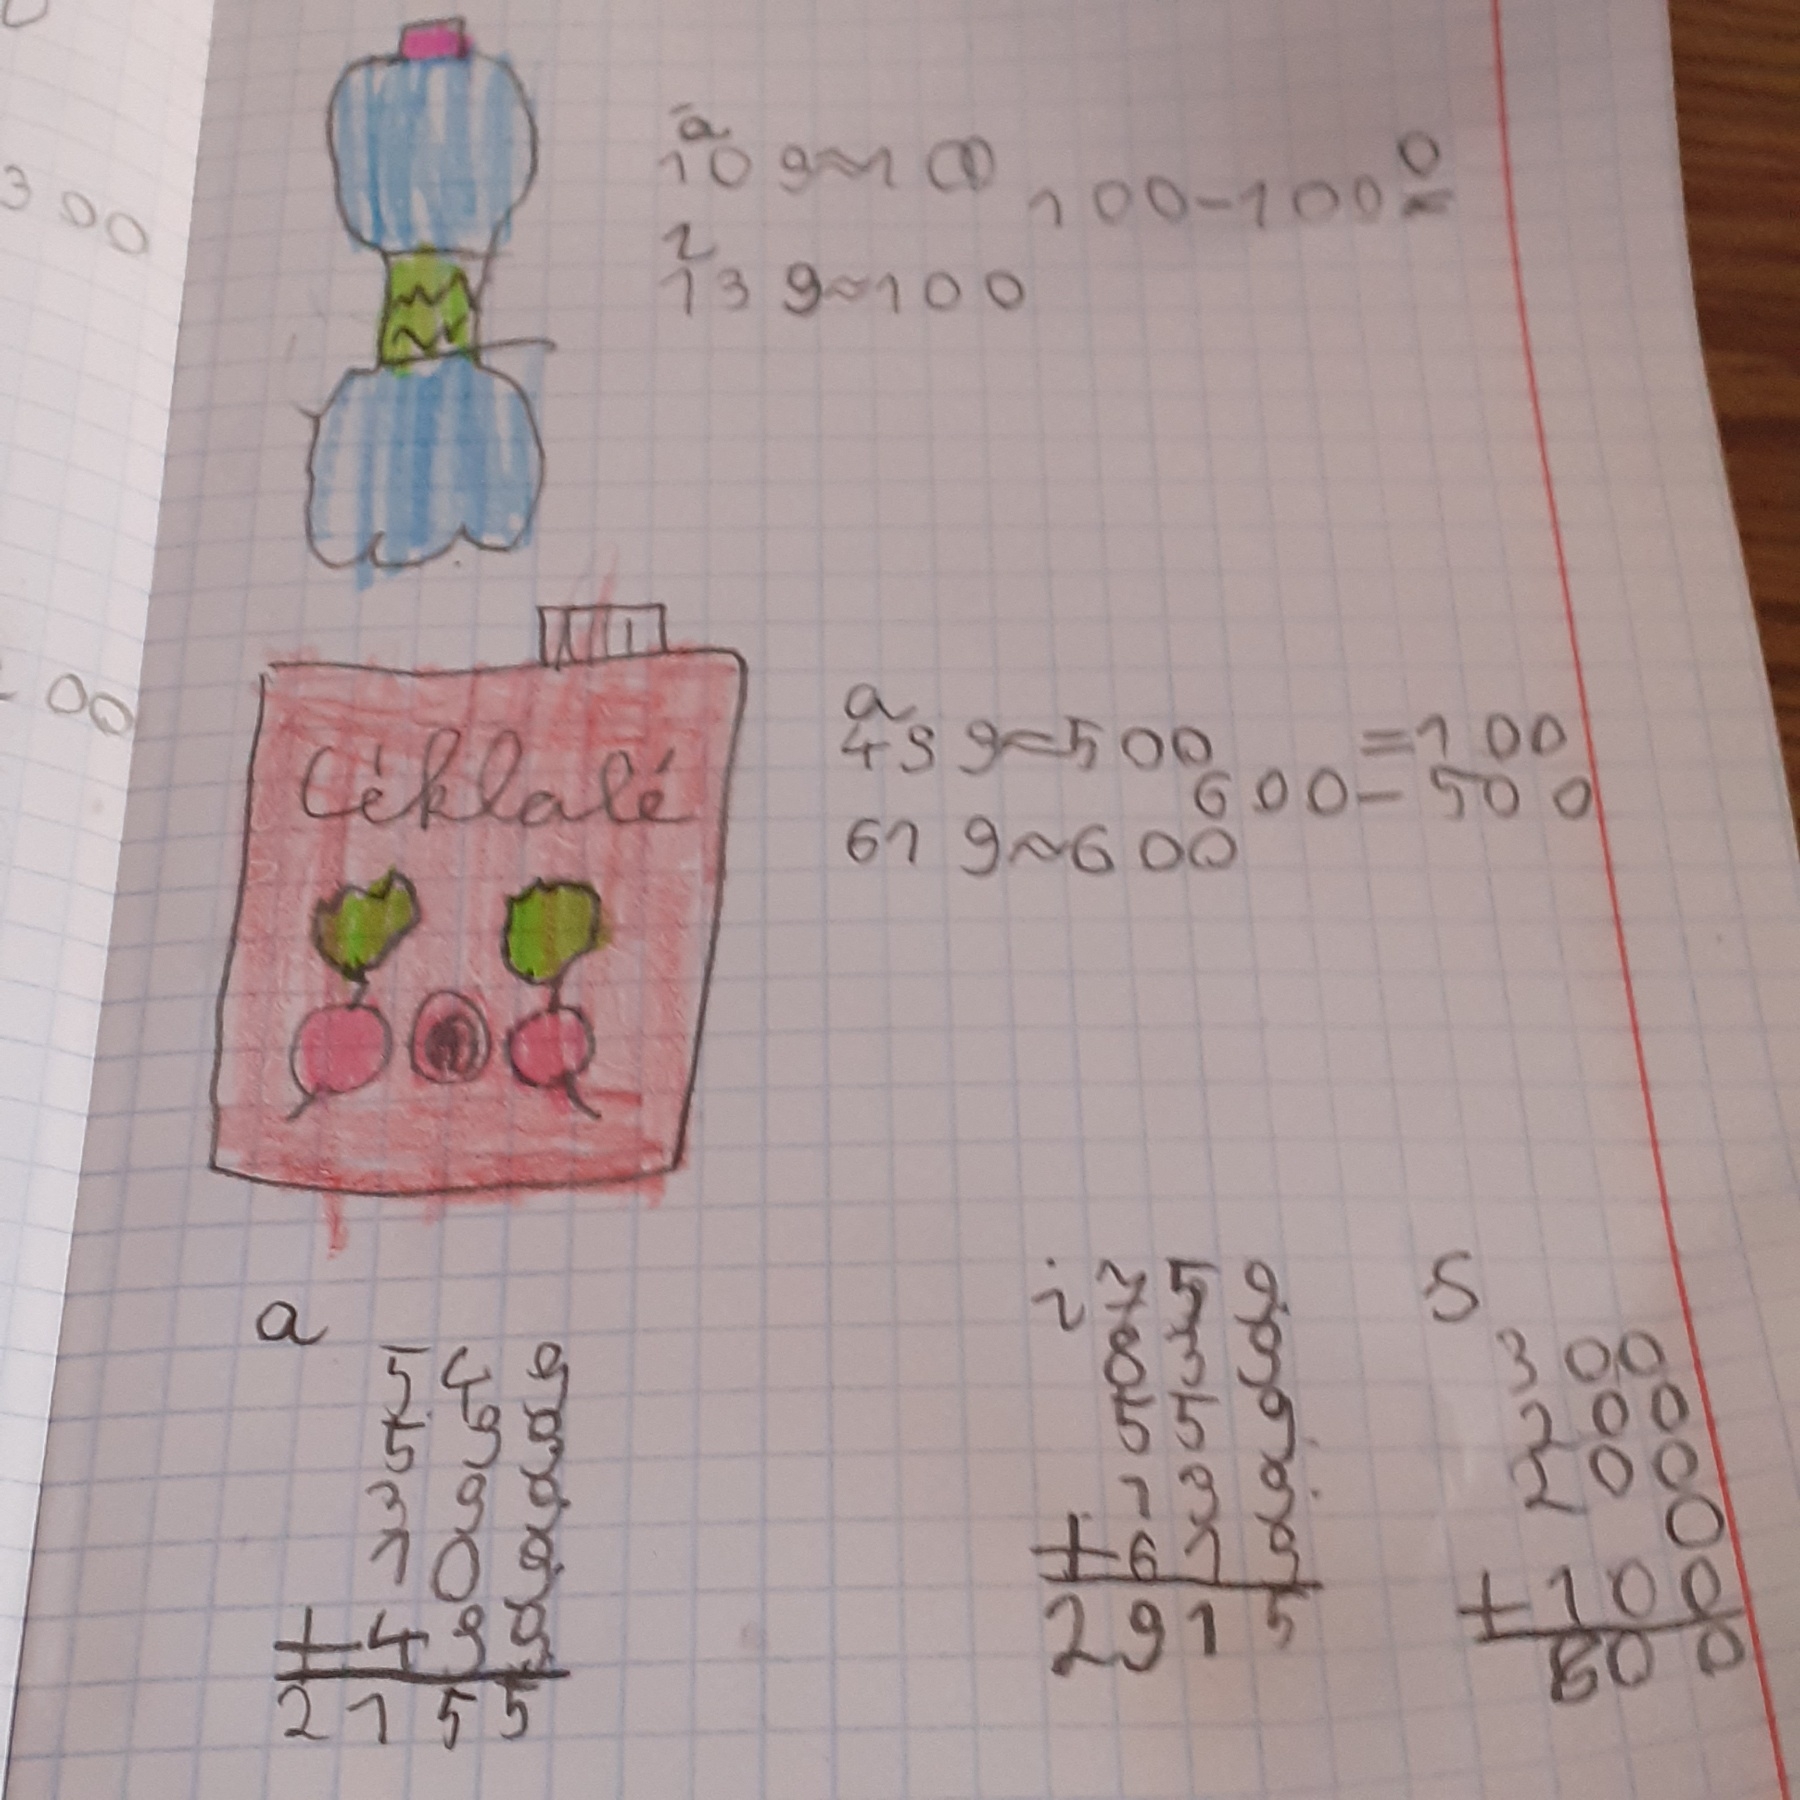 300
a
109≈100
100-100=0
i
139≈100
00
Céklalé
a
499≈500
=100
600-500
619≈600
a
549
599
399
109
+499
2155
i 759
839
559
139
+619
2915
S
300
200
200
0
+100
800